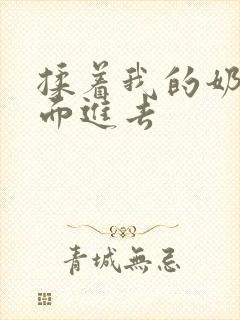 揉着我的奶
而進去
青城無忌